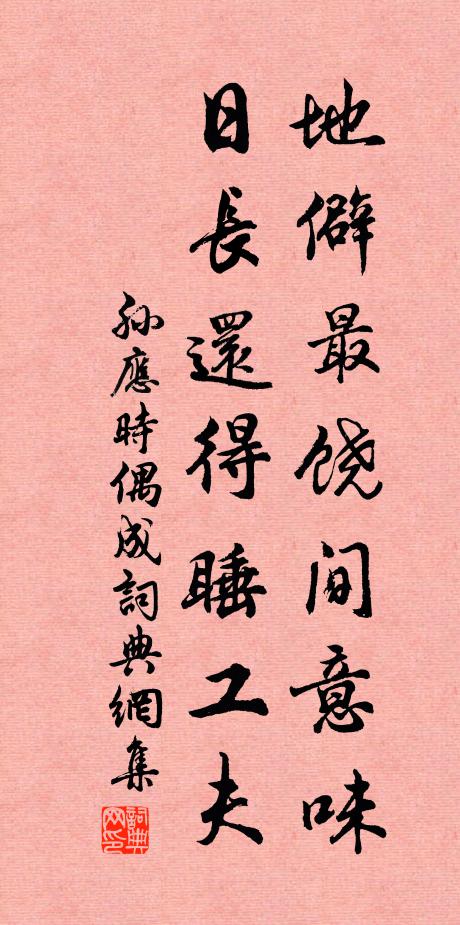 地僻最饶间意味
日長還得睡工夫
孫應時偶成詞典網集
詞典
网印